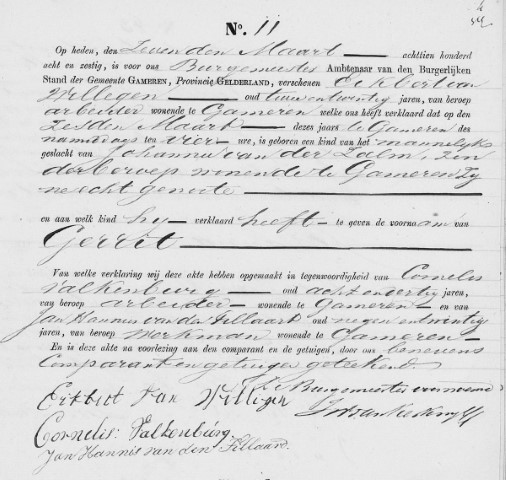 No. 11
Op heden, den Zevenden Maart achttien honderd
acht en zestig, is voor ons Burgemeester Ambtenaar van den Burgerlijken
Stand der Gemeente GAMEREN, Provincie GELDERLAND, verschenen Eckbert van
Willigen oud twee en twintig jaren, van beroep
arbeider wonende te Gameren welke ons heeft verklaard dat op den
Zesden Maart dezes jaars te Gameren des
namiddags ten vier ure, is geboren een kind van het mannelijk
geslacht van Johanna van der Zalm, zon
der beroep wonende te Gameren Zij
ne echtgenoote
en aan welk kind hij verklaard heeft te geven de voornaam van
Gerrit
Van welke verklaring wij deze akte hebben opgemaakt in tegenwoordigheid van Cornelis
Valkenburg oud acht en dertig jaren,
van beroep arbeider wonende te Gameren en van
Jan Hannes van den Fillaart oud negen en twintig
jaren, van beroep werkman wonende te Gameren
En is deze akte na voorlezing aan den comparant en de getuigen, door ons benevens
Comparant en getuigen geteekend
De Burgemeester voornoemd
Eckbert Van Willigen
Cornelis: Valkenburg
Jan Hannis van den Fillaard